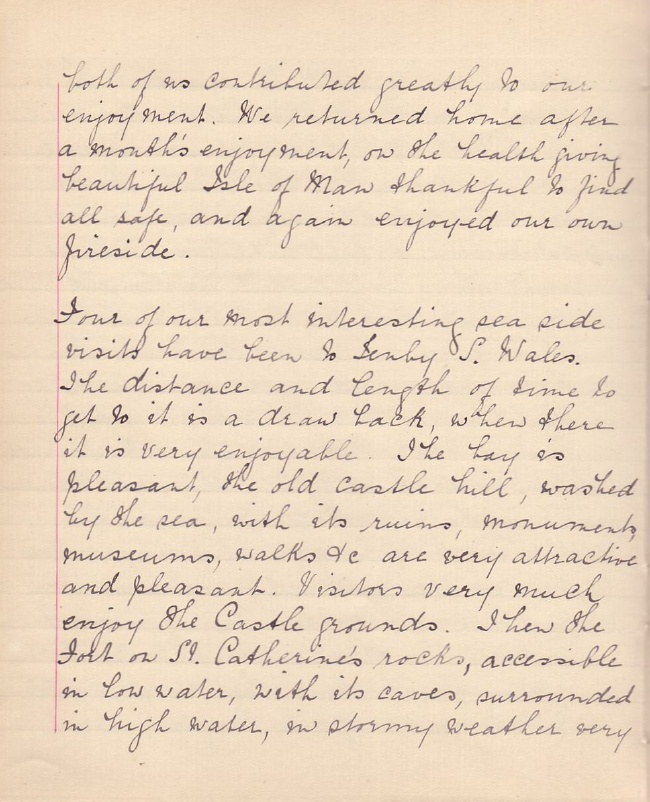 both of us contributed greatly to our
enjoyment. We returned home after
a month's enjoyment, on the health giving
beautiful Isle of Man thankful to find
all safe, and again enjoyed our own
fireside.
Four of our most interesting sea side
visits have been to Tenby S. Wales.
The distance and length of time to
get to it is a draw back, when there
it is very enjoyable. The bay is
pleasant, the old castle hill, washed
by the sea, with its ruins, monuments,
museums, walks &c are very attractive
and pleasant. Visitors very much
enjoy the Castle grounds. Then the
Fort on St. Catherine's rocks, accessible
in low water, with its caves, surrounded
in high water, in stormy weather very